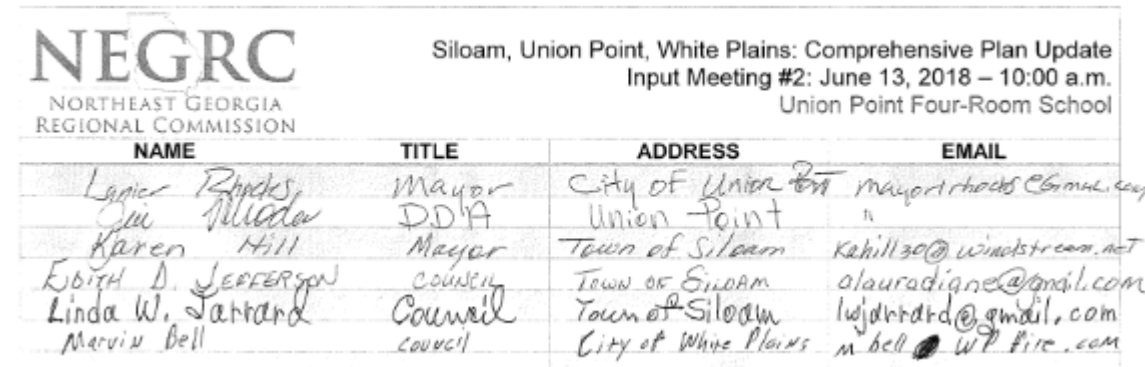 NEGRC
NORTHEAST GEORGIA
REGIONAL COMMISSION
Siloam, Union Point, White Plains: Comprehensive Plan Update
Input Meeting #2: June 13, 2018 – 10:00 a.m.
Union Point Four-Room School
NAME TITLE ADDRESS EMAIL
Lanier Rhodes Mayor City of Union
Rhodes DDA Union Point "
Karen Hill Mayor Town of Siloam Kahill30@windstream.net
EDITH D. JEFFERSON COUNCIL TOWN OF SILOAM alauradigne@gmail.com
Linda W. Jarrard Council Town of Siloam lwjarrard@gmail.com
Marvin Bell council City of White Plains m bell WP fire.com